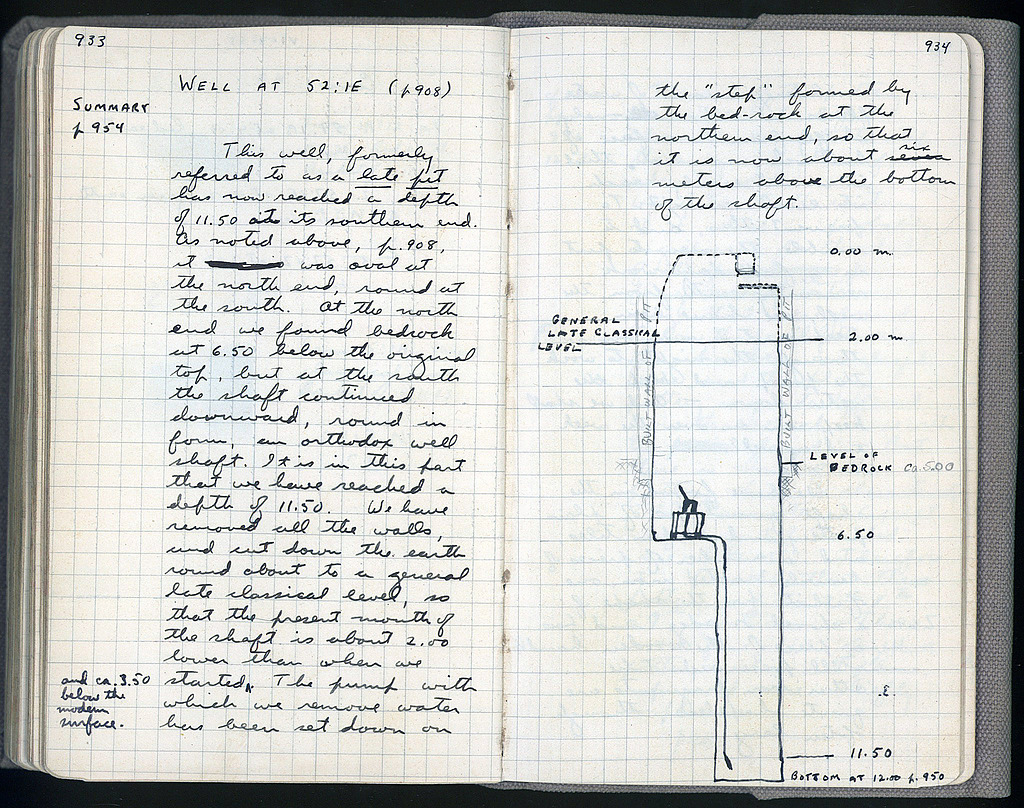 933
WELL AT 52:1E (p908)
SUMMARY
p 954
This well, formerly
referred to as a late pit
has now reached a depth
of 11.50 at its southern end.
As noted above, p.908,
it was oval at
the north end, round at
the south. At the north
end we found bedrock
at 6.50 below the original
top, but at the south
the shaft continued
downward, round in
form, an orthodox well
shaft. It is in this part
that we have reached a
depth of 11.50. We have
removed all the walls,
and cut down the earth
round about to a general
late classical level, so
that the present mouth of
the shaft is about 2.00
lower than when we
started. The pump with
which we remove water
has been set down on
and ca. 3.50
below the
modern
surface.
934
the "step" formed by
the bed-rock at the
northern end, so that
six
it is now about seven
meters above the bottom
of the shaft.
0.00 m.
GENERAL
LATE CLASSICAL
LEVEL
2.00 m.
BUILT WALL OF PIT
BUILT WALL OF PIT
LEVEL OF
BEDROCK ca 5.00
6.50
11.50
BOTTOM AT 12.00 p. 950